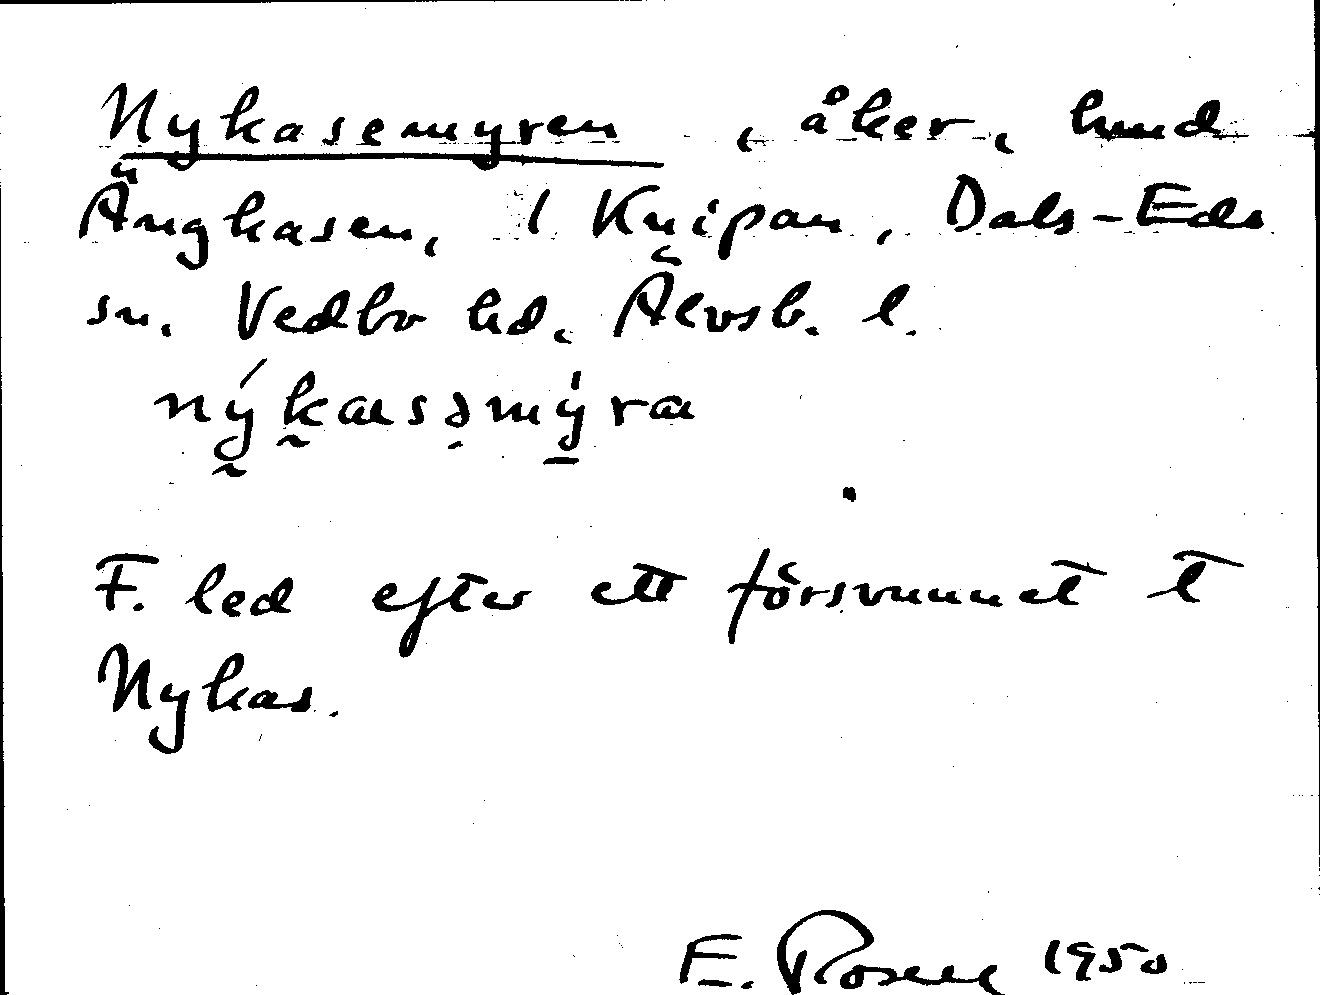 Nykasemyren, åker, hmd
Ängkasen, 1 Knipan, Dals-Eds
sn. Vedbo hd. Älvsb. l.
nýkassəmýra
F. led efter ett försvunnet t
Nykas.
E. Rosell 1950